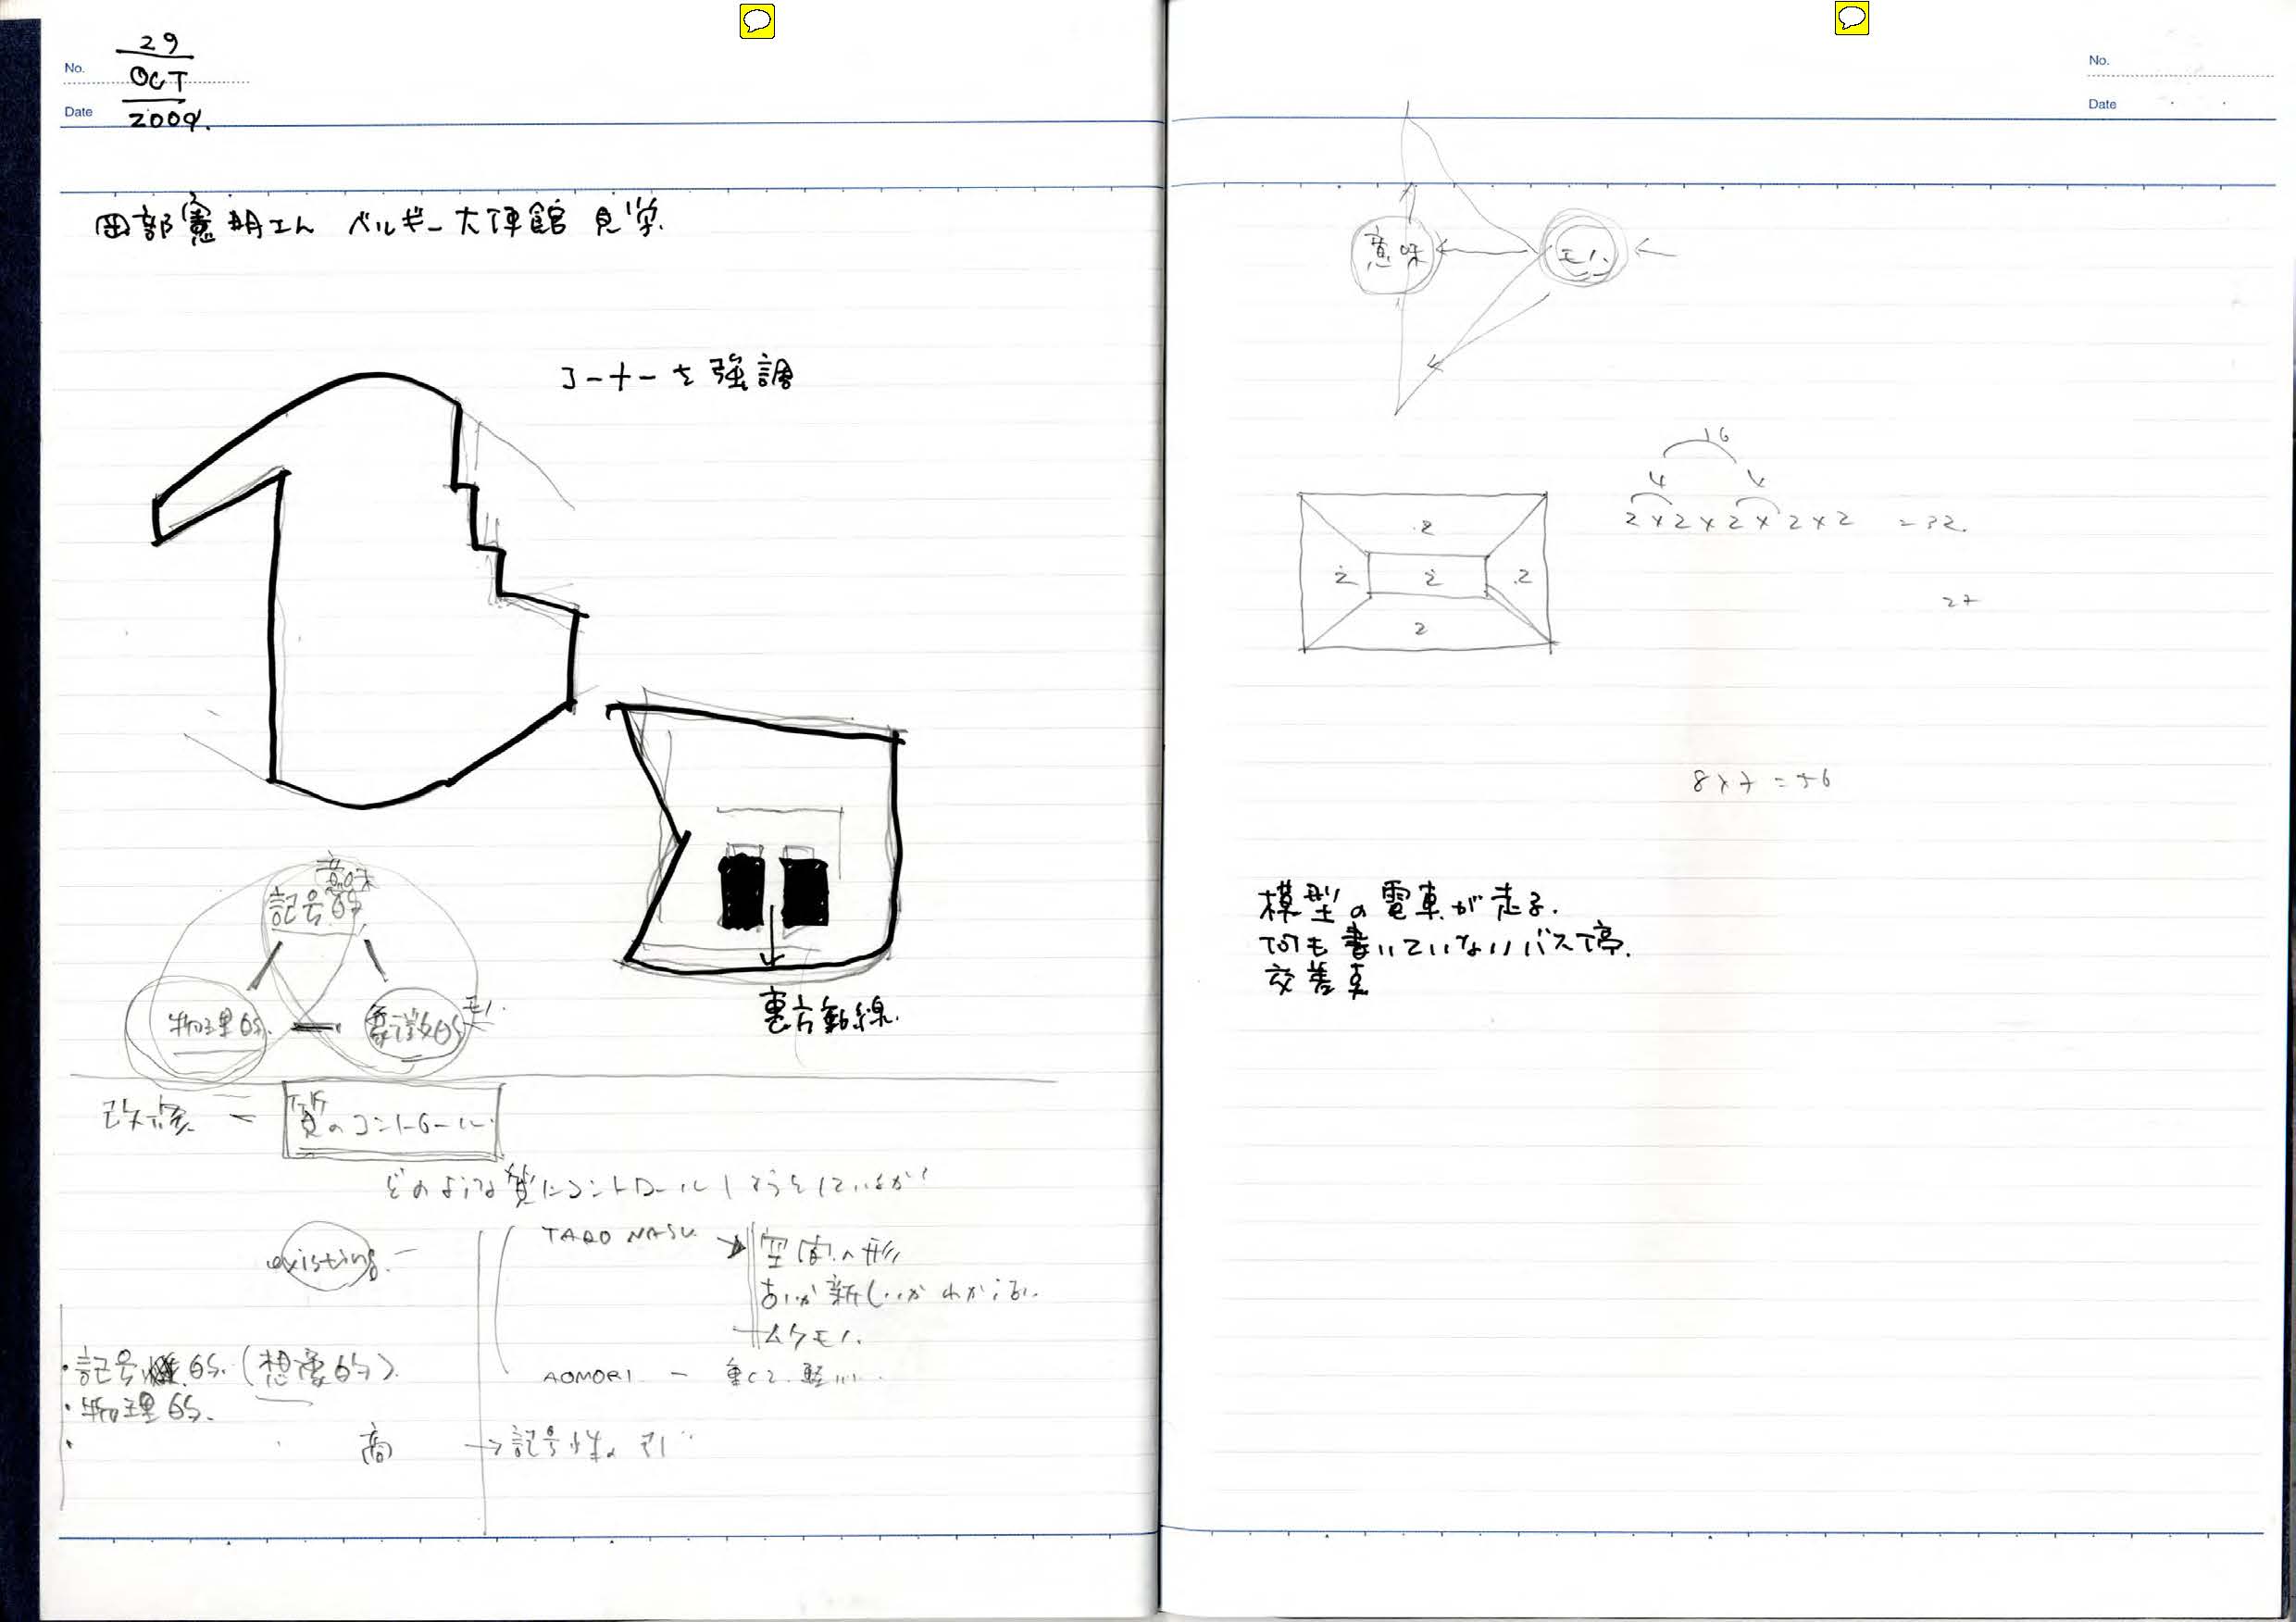 No.
Date
29
OCT
2009.
岡部憲明さん ベルギー大使館 見学.
コーナーを強調
意味
記号的
物理的.
象徴的
モノ.
裏方動線.
改修 =
質のコントロール.
どのような質にコントロールしようとしているか
existing.
TARO NASU.
空間の形
新しいか
ムクモノ.
・記号 的.(想像的).
AOMORI. - 重くて.軽い.
・物理的.
商
→記号性の
No.
Date
意味
モノ.
16
4
4
2×2×2×2×2 =32.
2
2
2
2
2
27
8×7=56
模型の電車が走る.
何も書いていないバス停.
交差点